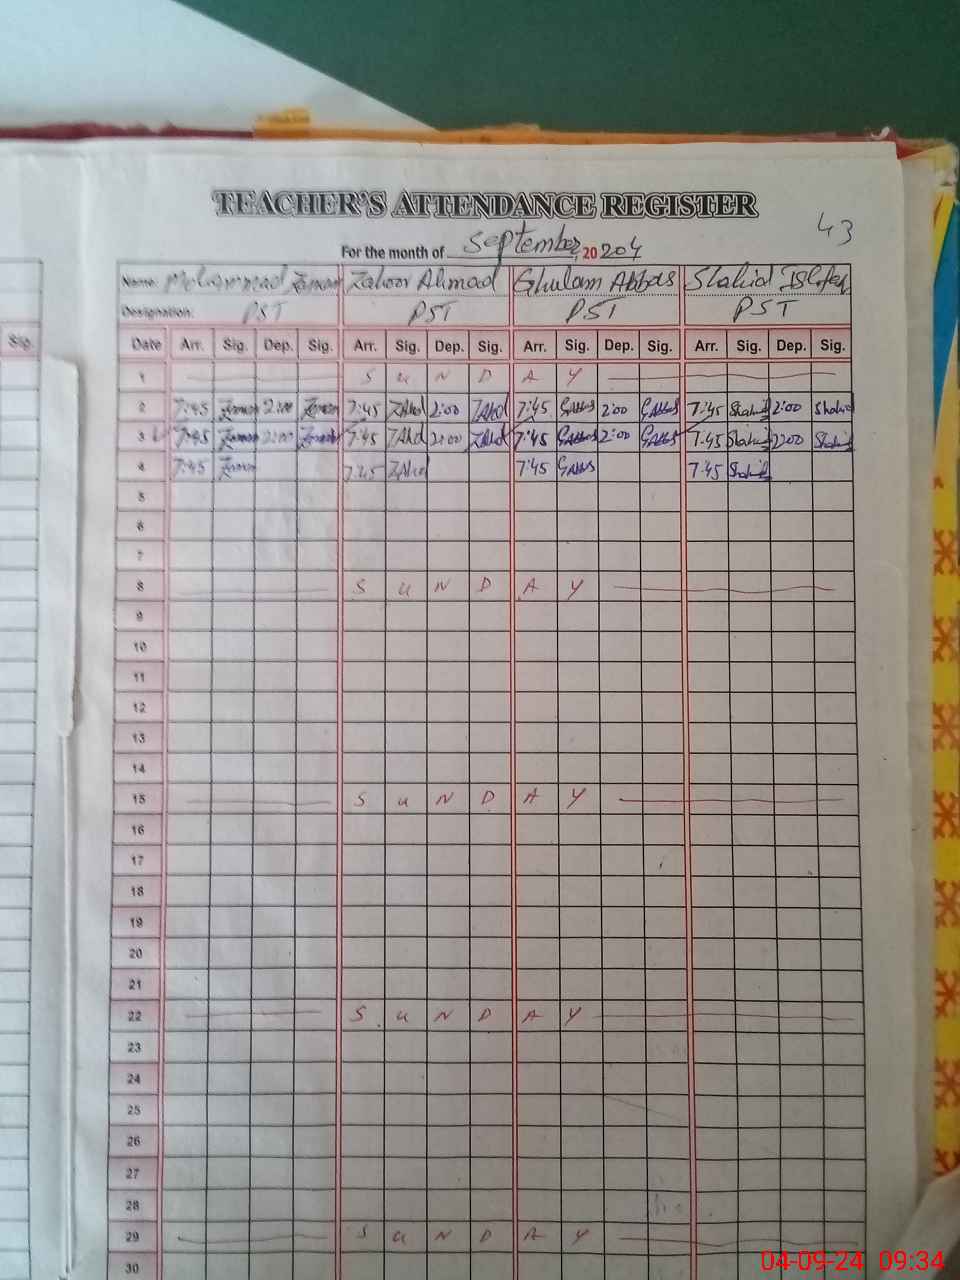 TEACHER'S ATTENDANCE REGISTER
43
For the month of September 20204
Name: Mohammad Zaman Zahoor Ahmad Ghulam Abbas Shahid
Designation: PST PST PST PST
Sig. Date Arr. Sig. Dep. Sig. Arr. Sig. Dep. Sig. Arr. Sig. Dep. Sig. Arr. Sig. Dep. Sig.
1 S U N D A Y
2 7:45 Zaman 2:00 Zaman 7:45 ZAhd 2:00 ZAhd 7:45 GAbbs 2:00 GAbbs 7:45 Shahid 2:00 Shahid
3 7:45 Zaman 2:00 Zaman 7:45 ZAhd 2:00 ZAhd 7:45 GAbbs 2:00 GAbbs 7:45 Shahid 2:00 Shahid
4 7:45 Zaman 7:45 ZAhd 7:45 GAbbs 7:45 Shahid
5
6
7
8 S U N D A Y
9
10
11
12
13
14
15 S U N D A Y
16
17
18
19
20
21
22 S U N D A Y
23
24
25
26
27
28
29 S U N D A Y
30
04-09-24 09:34